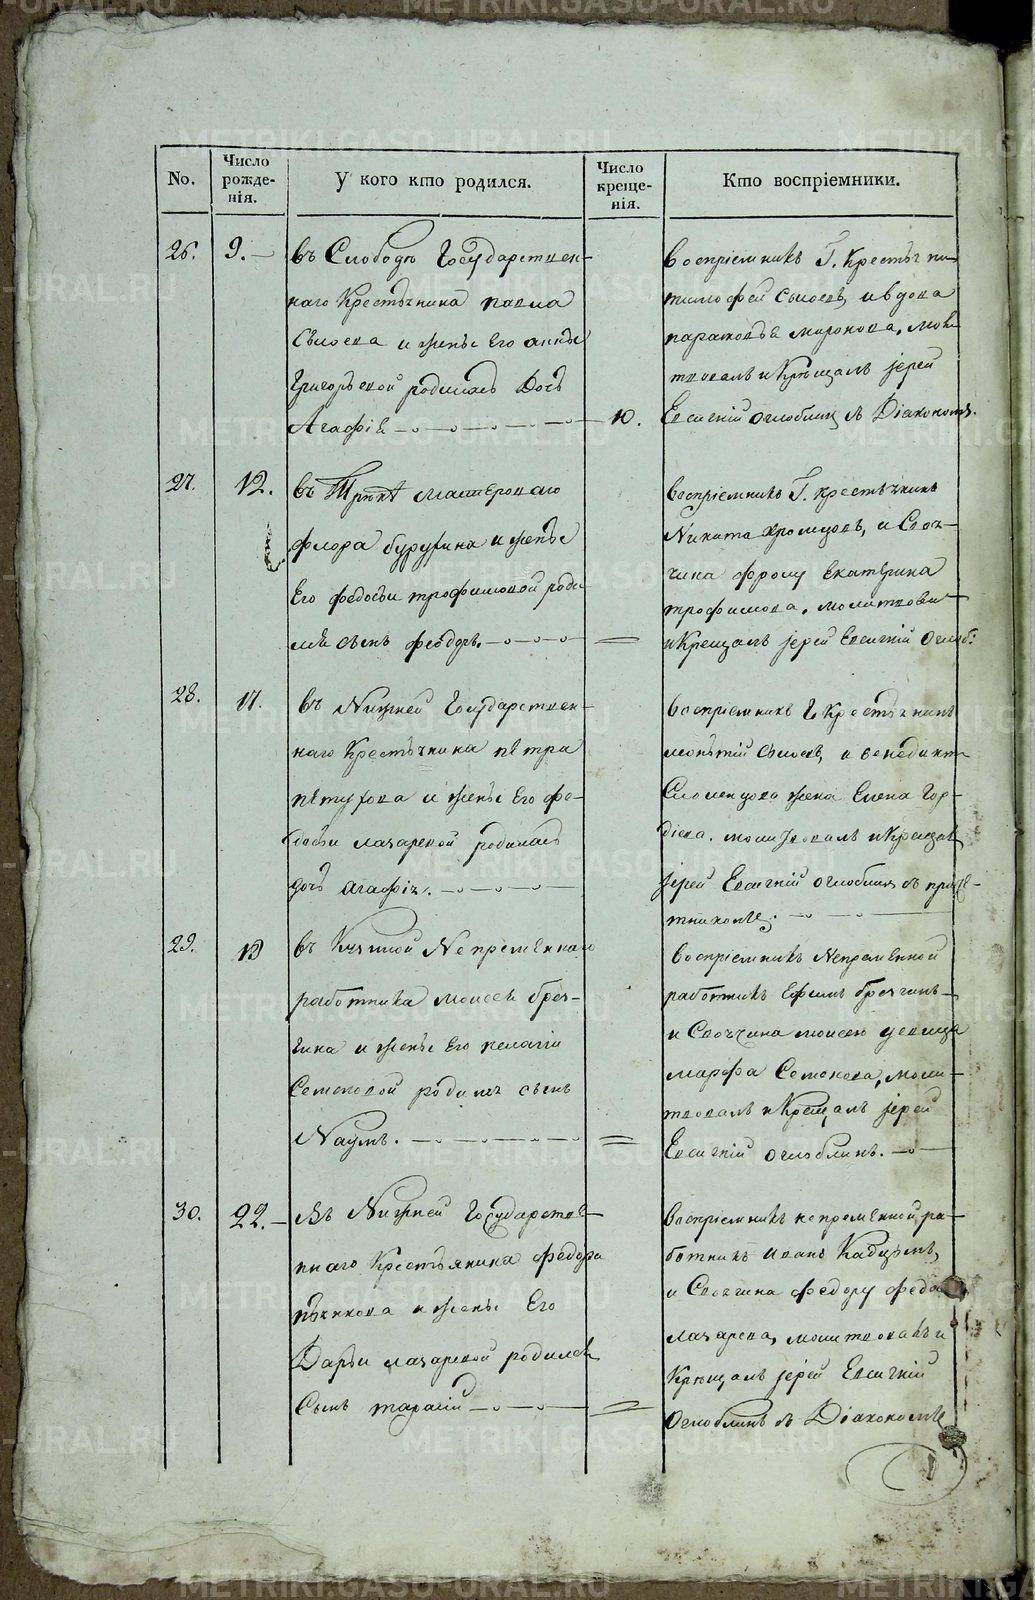 No.
Число рожде-нія.
У кого кто родился.
Число креще-нія.
Кто воспріемники.
26.
9.
въ Слободѣ Государствен-
наго Крестьянина павла
Сысоева и жены Его анны
Григорьевой родилась Дочь
Агафія
10.
воспріемникъ Г. Крестьянинъ
тимофей сысоевъ, и вдова
параковья миронова, моли
твовалъ и Крещалъ іерей
Евсигній Оглоблинъ съ Діакономъ.
27.
12.
въ мастероваго
флора бурухина и жены
Его федосьи трофимовой роди
лся сынъ феодоръ.
воспріемникъ Г. крестьянинъ
Никита хромцовъ, и Своя-
чина флору Екатерина
трофимова. молитвова
и Крещалъ іерей Евсигній Оглоб:
28.
17.
въ Нижней Государствен-
наго Крестьянина петра
петухова и жены Его фе-
досьи лазаревой родилась
дочь агафія.
воспріемникъ Г Крестьянинъ
сысоевъ, и венедикта
Сломенцова жена Елена Гор-
діева. молитвовалъ и Крещалъ
іерей Евсигній оглоблинъ съ приче-
тникомъ.
29.
19
въ Непременнаго
работника моисея
и жены Его пелагіи
Семеновой родился сынъ
Наумъ.
воспріемникъ Непременной
работникъ Ефимъ
и Своячина моисею девица
марфа Семенова, моли-
твовалъ и Крещалъ іерей
Евсигній оглоблинъ.
30.
22.
Въ Нижней Государстве-
ннаго Крестьянина федора
пьянкова и жены Его
Дарьи лазаревой родился
Сынъ тарасій
воспріемникъ непременной ра-
ботникъ иванъ
и Своячина федору
лазарева, молитвовалъ и
Крещалъ іерей Евсигній
Оглоблинъ съ Діакономъ
METRIKI.GASO-URAL.RU